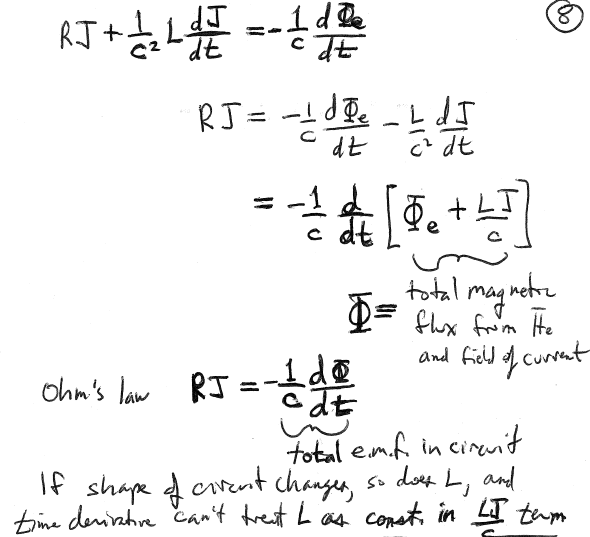 RJ + 1/c² L dJ/dt = - 1/c dΦe/dt
⑧
RJ = - 1/c dΦe/dt - L/c² dJ/dt
= - 1/c d/dt [Φe + LJ/c]
Φ = total magnetic
flux from H̄e
and field of current
Ohm's law RJ = - 1/c dΦ/dt
total e.m.f. in circuit
If shape of circuit changes, so does L, and
time derivative can't treat L as const. in LJ/c term